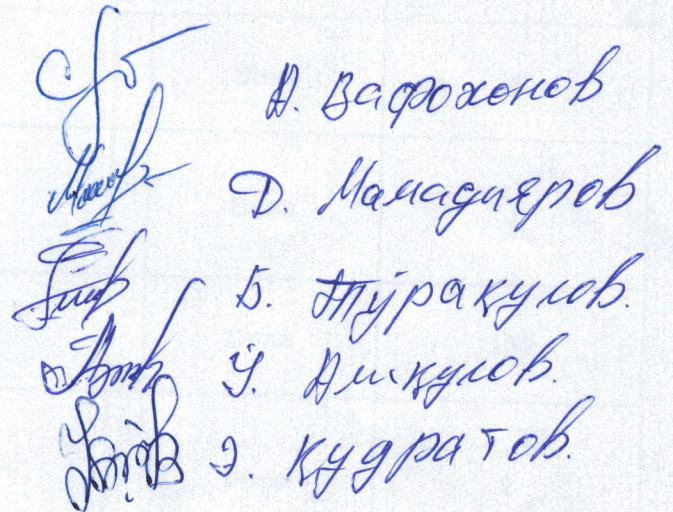 А. Вафохонов
Д. Мамадияров
Б. Тўрақулов.
Ў. Алиқулов.
Э. Қудратов.